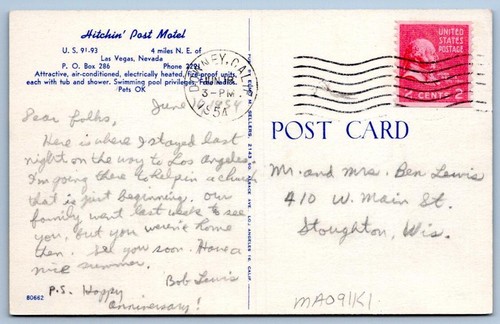 Hitchin' Post Motel
U. S. 91-93 4 miles N. E. of
Las Vegas, Nevada
P. O. Box 286 Phone 3291
Attractive, air-conditioned, electrically heated, fire-proof units,
each with tub and shower. Swimming pool privileges. Free radios.
Pets OK
DOWNEY, CALIF.
JUN 18
3-PM
1954
UNITED
STATES
POSTAGE
2 CENTS 2
POST CARD
June 18, 1954
Dear folks,
Here is where I stayed last
night on the way to Los Angeles.
I'm going there to help in a church
that is just beginning. Our
family went last week to see
you, but you weren't home
then. See you soon. Have a
nice summer.
Bob Lewis
P.S. Happy
anniversary!
Mr. and Mrs. Ben Lewis
410 W. Main St.
Stoughton, Wis.
MA091K1
80662